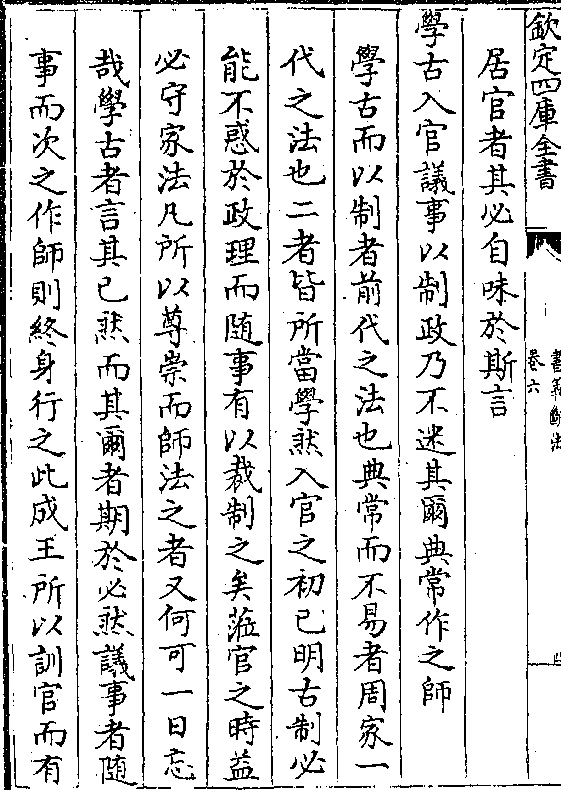 欽定四庫全書
書義斷法
卷六
四
居官者其必自味於斯言
學古入官議事以制政乃不迷其爾典常作之師
學古而以制者前代之法也典常而不易者周家一
代之法也二者皆所當學然入官之初已明古制必
能不惑於政理而隨事有以裁制之矣蒞官之時益
必守家法凡所以尊崇而師法之者又何可一日忘
哉學古者言其已然而其爾者期於必然議事者隨
事而次之作師則終身行之此成王所以訓官而有